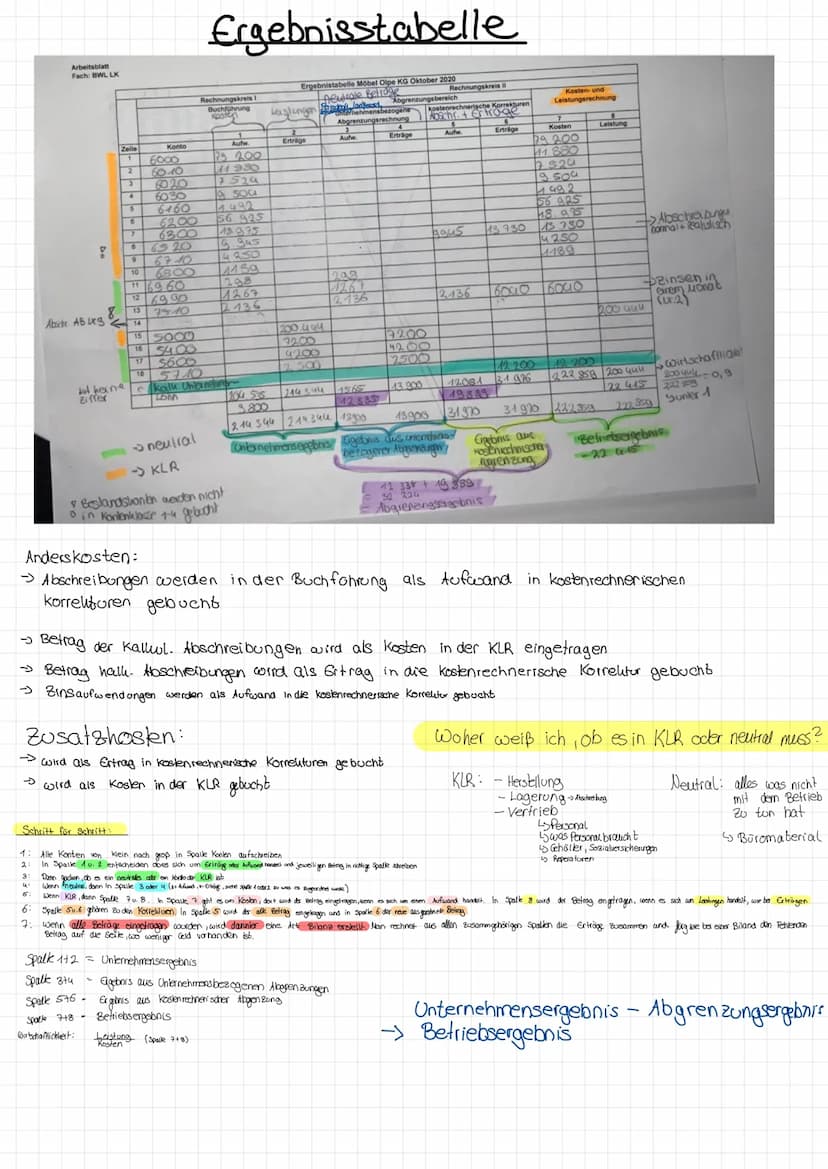 Ergebnisstabelle
Arbeitsblatt
Fach: BWL LK
Ergebnistabelle Möbel Olpe KG Oktober 2020
Rechnungskreis I
Rechnungskreis II
Kosten- und
Leistungsrechnung
neutrale Beträge
Abgrenzungsbereich
Buchführung
Kosten
Leistungen
unternehmensbezogene
Abgrenzungsrechnung
kostenrechnerische Korrekturen
Abschr. + Erträge
1 2 3 4 5 6 7 8
Zeile Konto Aufw. Erträge Aufw. Erträge Aufw. Erträge Kosten Leistung
1 6000 79 200 79 200
2 6010 11 880 11 880
3 6020 7 524 7 524
4 6030 9 504 9 504
5 6160 1 492 1 492
6 6200 56 925 56 925
7 6300 18 975 18 975
8 6520 9 945 9945 13 730 13 730
9 6710 4 250 4 250
10 6800 1189 1189
11 6960 298 298
12 6990 1267 1267
13 7510 2 136 2 136 2 136 6040 6040
14 200 444 200 444
15 5000 7200 7200
16 5400 4200 4200
17 5600 2 500 2500
18 5710
kalk. Unternehmer-
lohn 12 200 12 200
204 585 214 344 1565 13 900 12081 31 970 222 859 200 444
9.800 12 335 19 889 22 415
214 344 214 344 13900 13900 31 970 31 970 222 859 222 859
→ Abschreibung
normal + kalkulatorisch
→ Zinsen in
einem Monat
(:12)
→ Wirtschaftlichkeit
200 444
222 859
= 0,9
↳ unter 1
hat keine
Ziffer
Unternehmensergebnis
Ergebnis aus unternehmens-
bezogener Abgrenzungen
Ergebnis aus
kostenrechnerischer
Abgrenzung
Betriebsergebnis
- 22 415
→ neutral
→ KLR
12 335 + 19 889
= 32 224
= Abgrenzungsergebnis
Bestandskonten werden nicht
in Kontenklasse 1-4 gebucht
Anderskosten:
→ Abschreibungen werden in der Buchführung als Aufwand in kostenrechnerischen
korrekturen gebucht
→ Betrag der Kalkul. Abschreibungen wird als Kosten in der KLR eingetragen
→ Betrag kalk. Abschreibungen wird als Ertrag in die kostenrechnerische Korrektur gebucht
→ Zinsaufwendungen werden als Aufwand in die kostenrechnerische Korrektur gebucht
Zusatzkosten:
→ wird als Ertrag in kostenrechnerische Korrekturen gebucht
→ wird als Kosten in der KLR gebucht
Woher weiß ich, ob es in KLR oder neutral muss?
KLR: - Herstellung
- Lagerung → Abschreibung
- Vertrieb
↳ Personal
↳ was Personal braucht
↳ Gehälter, Sozialversicherungen
↳ Reparaturen
Neutral: alles was nicht
mit dem Betrieb
zu tun hat
↳ Büromaterial
Schritt für Schritt:
1: Alle Konten von klein nach groß in Spalte Konten aufschreiben
2: In Spalte 1 o. 2 entscheiden ob es sich um Erträge oder Aufwand handelt und jeweiligen Betrag in richtige Spalte schreiben
3: Dann gucken, ob es ein neutrales oder ein KLR ist
4: Wenn neutral, dann in Spalte 3 oder 4
5: Wenn KLR, dann Spalte 7 u. 8. In Spalte 7 geht es um Kosten, dort wird der Betrag eingetragen, wenn es sich um einen Aufwand handelt. In Spalte 8 wird der Betrag eingetragen, wenn es sich um Leistungen handelt, also bei Erträgen
6: Spalte 5 u. 6 gehören zu den Korrekturen. In Spalte 5 wird der alte Betrag eingetragen und in Spalte 6 der neue ausgerechnete Betrag
7: Wenn alle Beträge eingetragen wurden, wird darunter eine Art Bilanz erstellt. Man rechnet aus allen zusammengehörigen Spalten die Erträge zusammen und fügt wie bei einer Bilanz den fehlenden
Betrag auf die Seite, wo weniger Geld vorhanden ist.
Spalte 1+2 = Unternehmensergebnis
Spalte 3+4 - Ergebnis aus Unternehmensbezogenen Abgrenzungen
Spalte 5+6 - Ergebnis aus kostenrechnerischer Abgrenzung
Spalte 7+8 - Betriebsergebnis
Wirtschaftlichkeit: Leistung
Kosten (Spalte 7+8)
Unternehmensergebnis – Abgrenzungsergebnis
→ Betriebsergebnis